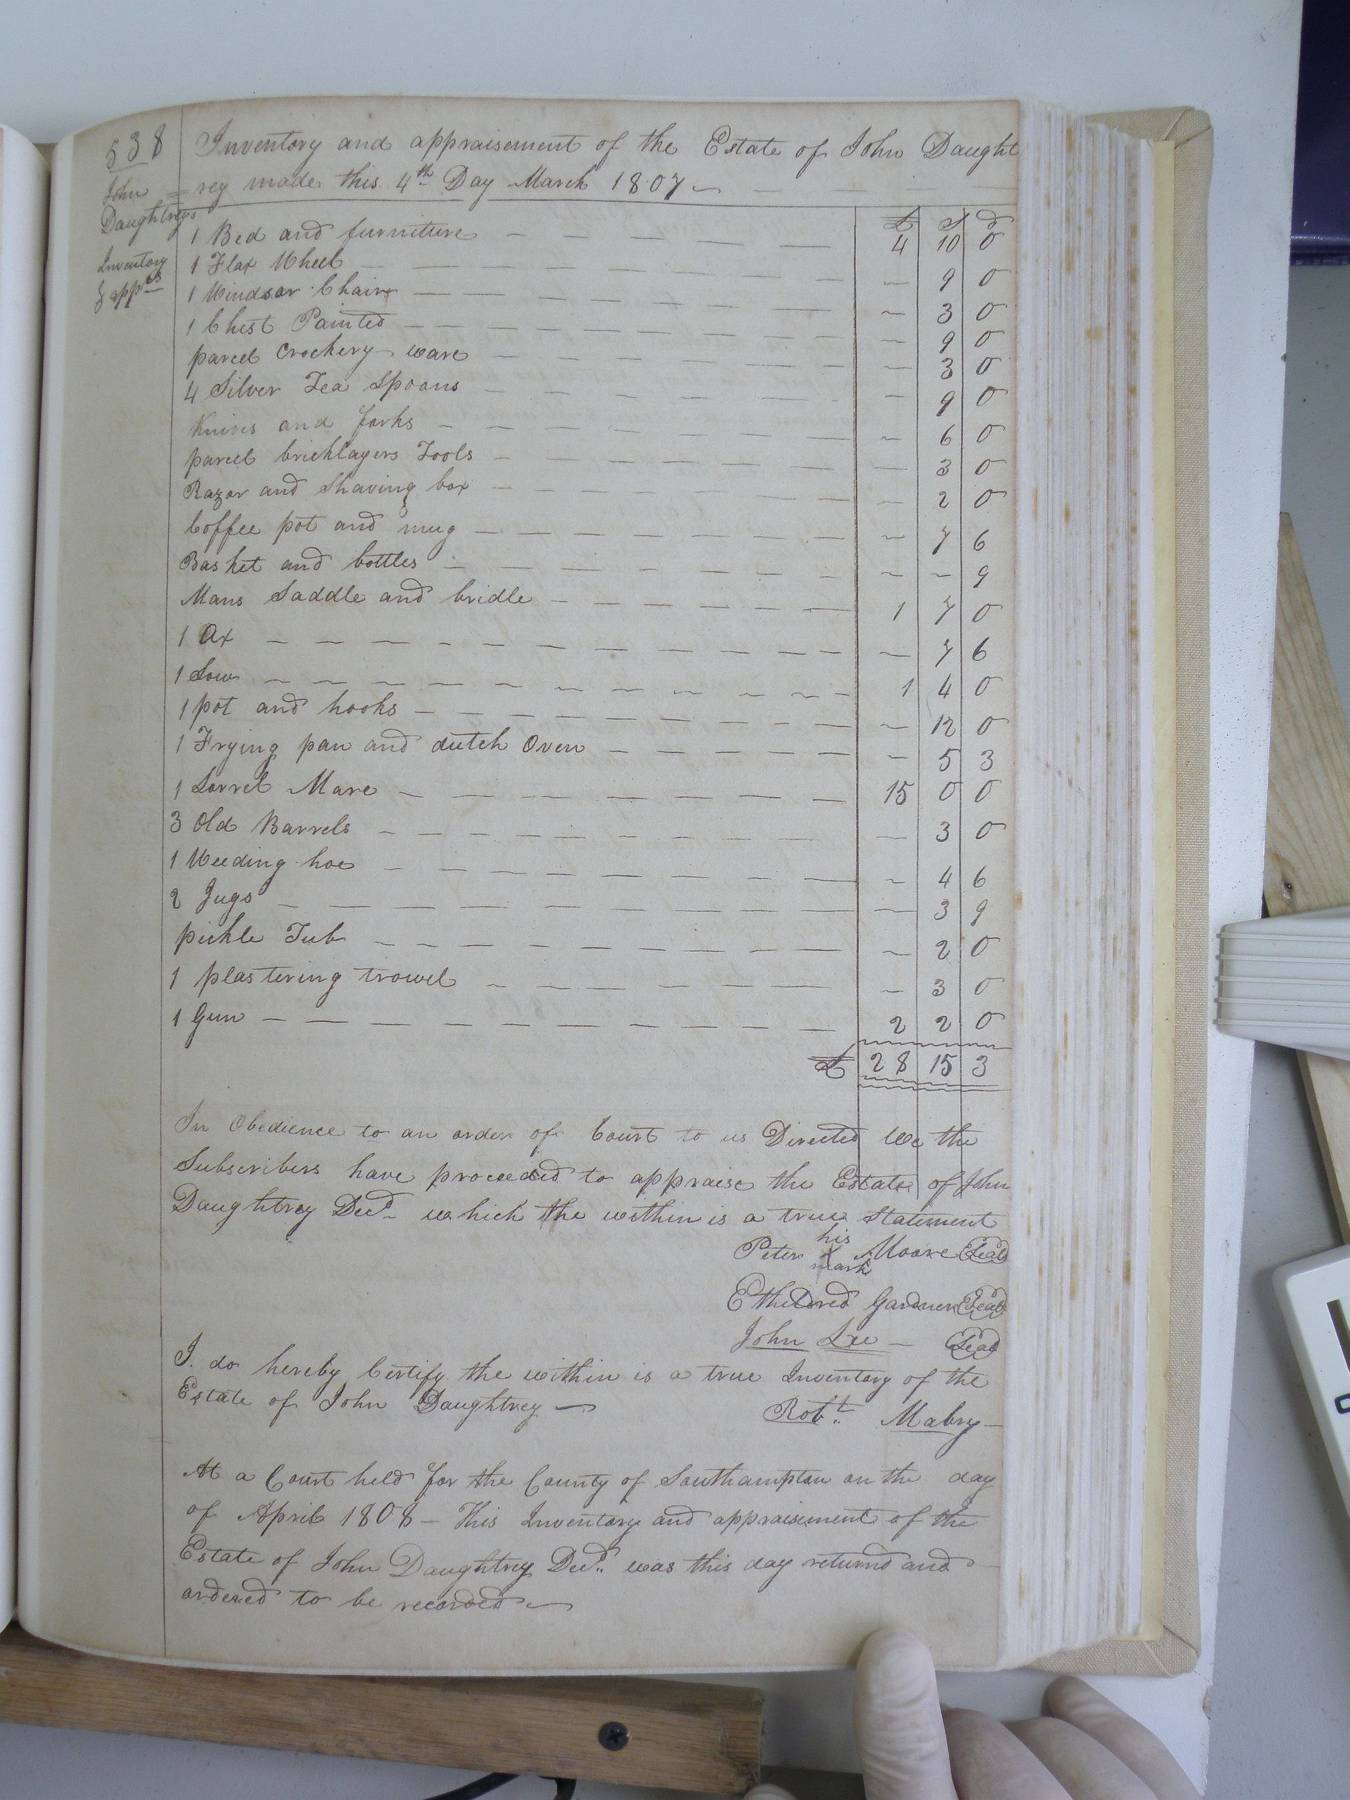 538
John
Daughtreys
Inventory
& apprts
Inventory and appraisement of the Estate of John Daught
=rey made this 4th Day March 1807
£ S d
1 Bed and furniture 4 10 0
1 Flax Wheel 9 0
1 Windsor Chair 3 0
1 Chest Painted 9 0
parcel Crockery ware 3 0
4 Silver Tea Spoons 9 0
Knives and forks 6 0
parcel bricklayers Tools 3 0
Razor and Shaving box 2 0
Coffee pot and mug 7 6
Basket and bottles 9
Mans Saddle and bridle 1 7 0
1 Ax 7 6
1 Sow 1 4 0
1 pot and hooks 12 0
1 Frying pan and dutch Oven 5 3
1 Sorrel Mare 15 0 0
3 Old Barrels 3 0
1 Weeding hoe 4 6
2 Jugs 3 9
pickle Tub 2 0
1 plastering trowel 3 0
1 Gun 2 2 0
£ 28 15 3
In Obedience to an order of Court to us Directed we the
Subscribers have proceeded to appraise the Estate of John
Daughtrey Decd which the within is a true Statement
Peter his X mark Moore Seal
Etheldred Gardner Seal
John Lee Seal
I do hereby Certify the within is a true Inventory of the
Estate of John Daughtrey
Robt Mabry
At a Court held for the County of Southampton on the day
of April 1808 - This Inventory and appraisement of the
Estate of John Daughtrey Decd was this day returnd and
ordered to be recorded